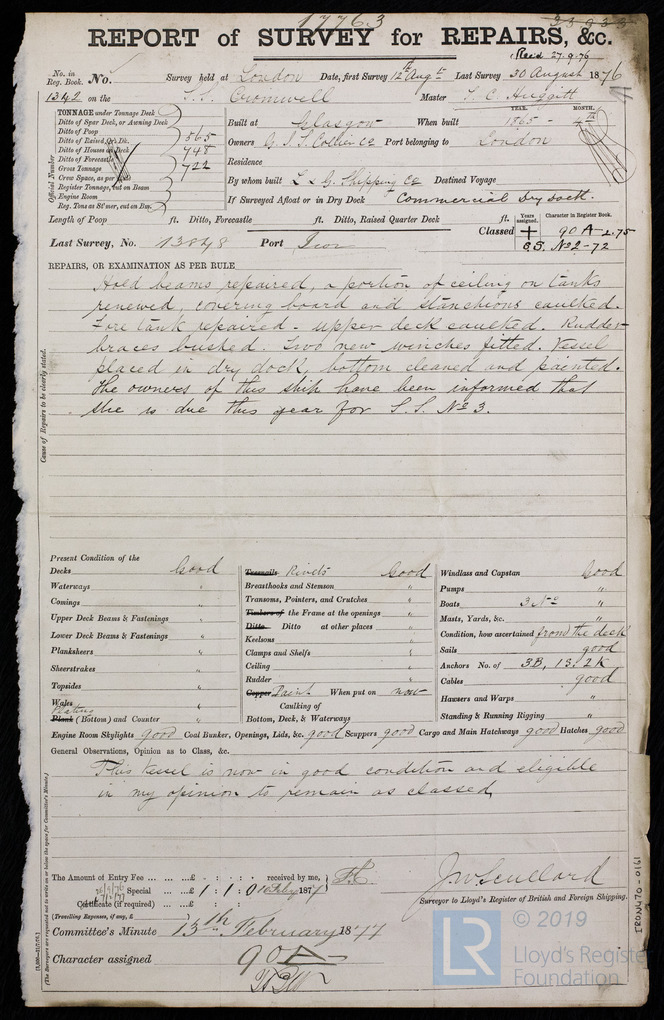 17763
REPORT of SURVEY for REPAIRS, &c.
Recd 27.9.76
No. in Reg. Book. No. Survey held at London Date, first Survey 12th Augt Last Survey 30 August 1876
1342 on the S.S. Cromwell Master
TONNAGE under Tonnage Deck
Ditto of Spar Deck, or Awning Deck
Ditto of Poop
Ditto of Raised Qr. Dk. 565
Ditto of Houses on Deck 748
Ditto of Forecastle
Gross Tonnage 722
Crew Space, as per
Register Tonnage, cut on Beam
Engine Room
Reg. Tons as St'mer, cut on Bm.
Official Number
YEAR. MONTH.
Built at Glasgow When built 1865 - 4th
Owners G. I. S. Collier Co Port belonging to London
Residence
By whom built L & G. Shipping Co Destined Voyage
If Surveyed Afloat or in Dry Dock Commercial Dry Dock.
Length of Poop ft. Ditto, Forecastle ft. Ditto, Raised Quarter Deck ft.
Years assigned. Character in Register Book.
Last Survey, No. 13848 Port Iron Classed + 90 A - 2.75
S.S. No2 - 72
REPAIRS, OR EXAMINATION AS PER RULE
Hold beams repaired, a portion of ceiling on tanks
renewed, covering board and stanchions caulked.
Fore tank repaired - upper deck caulked. Rudder
braces bushed. Two new winches fitted. Vessel
placed in dry dock, bottom cleaned and painted.
The owners of this ship have been informed that
she is due this year for S.S. No 3.
Cause of Repairs to be clearly stated.
Present Condition of the
Decks Good
Waterways "
Comings "
Upper Deck Beams & Fastenings "
Lower Deck Beams & Fastenings "
Planksheers "
Sheerstrakes "
Topsides "
Wales "
Plating
Plank (Bottom) and Counter "
Treenails Rivets Good
Breasthooks and Stemson "
Transoms, Pointers, and Crutches "
Timbers of the Frame at the openings "
Ditto Ditto at other places "
Keelsons "
Clamps and Shelfs "
Ceiling "
Rudder "
Copper Paint When put on now
Caulking of
Bottom, Deck, & Waterways "
Windlass and Capstan Good
Pumps "
Boats 3 No "
Masts, Yards, &c. "
Condition, how ascertained from the deck
Sails good
Anchors No. of 3B, 1S, 2K
Cables good
Hawsers and Warps "
Standing & Running Rigging "
Engine Room Skylights good Coal Bunker, Openings, Lids, &c. good Scuppers good Cargo and Main Hatchways good Hatches good
General Observations, Opinion as to Class, &c.
This Vessel is now in good condition and eligible
in my opinion to remain as classed,
The Amount of Entry Fee £ : : received by me,
Special £ 1 : 1 : 0 1877
Certificate (if required) £ : :
(Travelling Expenses, if any, £ )
J. W. Scullard
Surveyor to Lloyd's Register of British and Foreign Shipping.
Committee's Minute 13th February 1877
Character assigned 90 A
(The Surveyors are requested not to write on or below the space for Committee's Minute.)
IRON470-0161
LR
© 2019
Lloyd's Register
Foundation